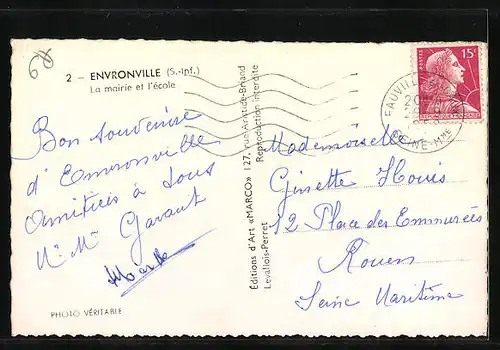 68
2 - ENVRONVILLE (S.-Inf.)
La mairie et l'école
Bon souvenir
d'Envronville
Amitiés à tous
Mr Mme Gavant
PHOTO VÉRITABLE
Editions d'Art «MARCO» 127, rue Aristide-Briand
Levallois-Perret
Reproduction interdite
POSTES
15F
FAUVILLE
SEINE-MME
Mademoiselle
Ginette Houis
12 Place des Emmurées
Rouen
Seine Maritime